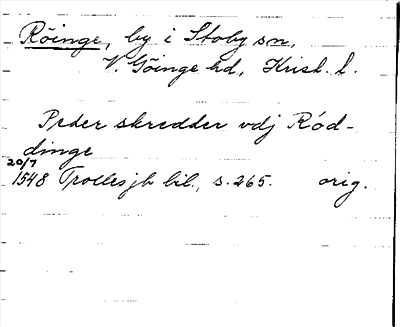 Röinge, by i Stoby sn,
V. Göinge hd, Krist. l.
Peder skredder vdj Ród-
dinge
20/7
1548 Trollesjb bil., s. 265. orig.